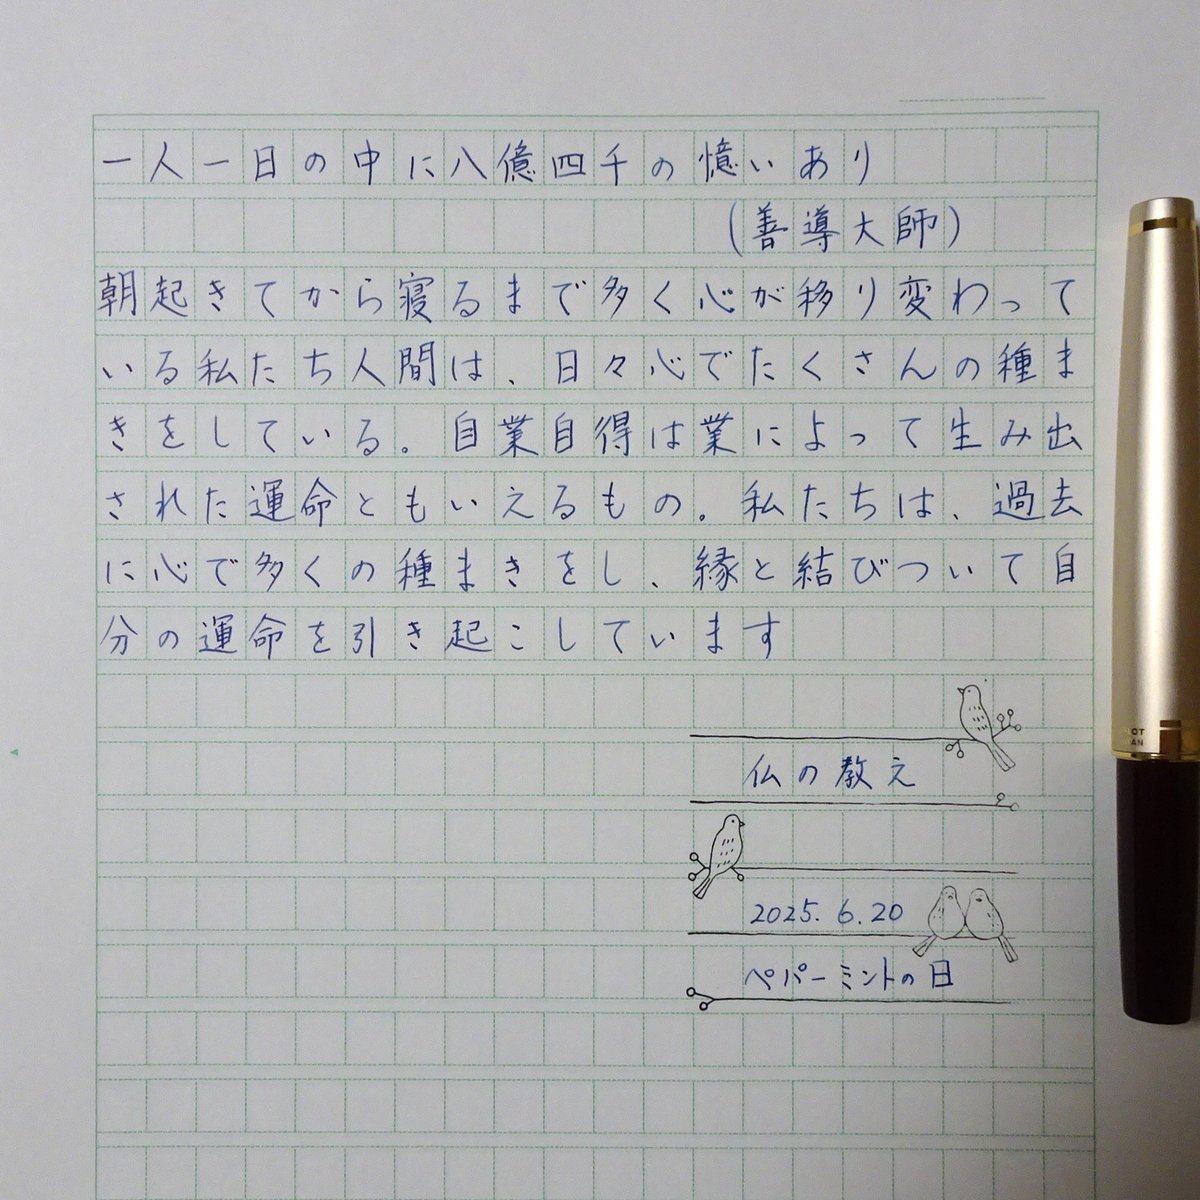 一人一日の中に八億四千の憶いあり
(善導大師)
朝起きてから寝るまで多く心が移り変わって
いる私たち人間は、日々心でたくさんの種ま
きをしている。自業自得は業によって生み出
された運命ともいえるもの。私たちは、過去
に心で多くの種まきをし、縁と結びついて自
分の運命を引き起こしています
仏の教え
2025.6.20
ペパーミントの日